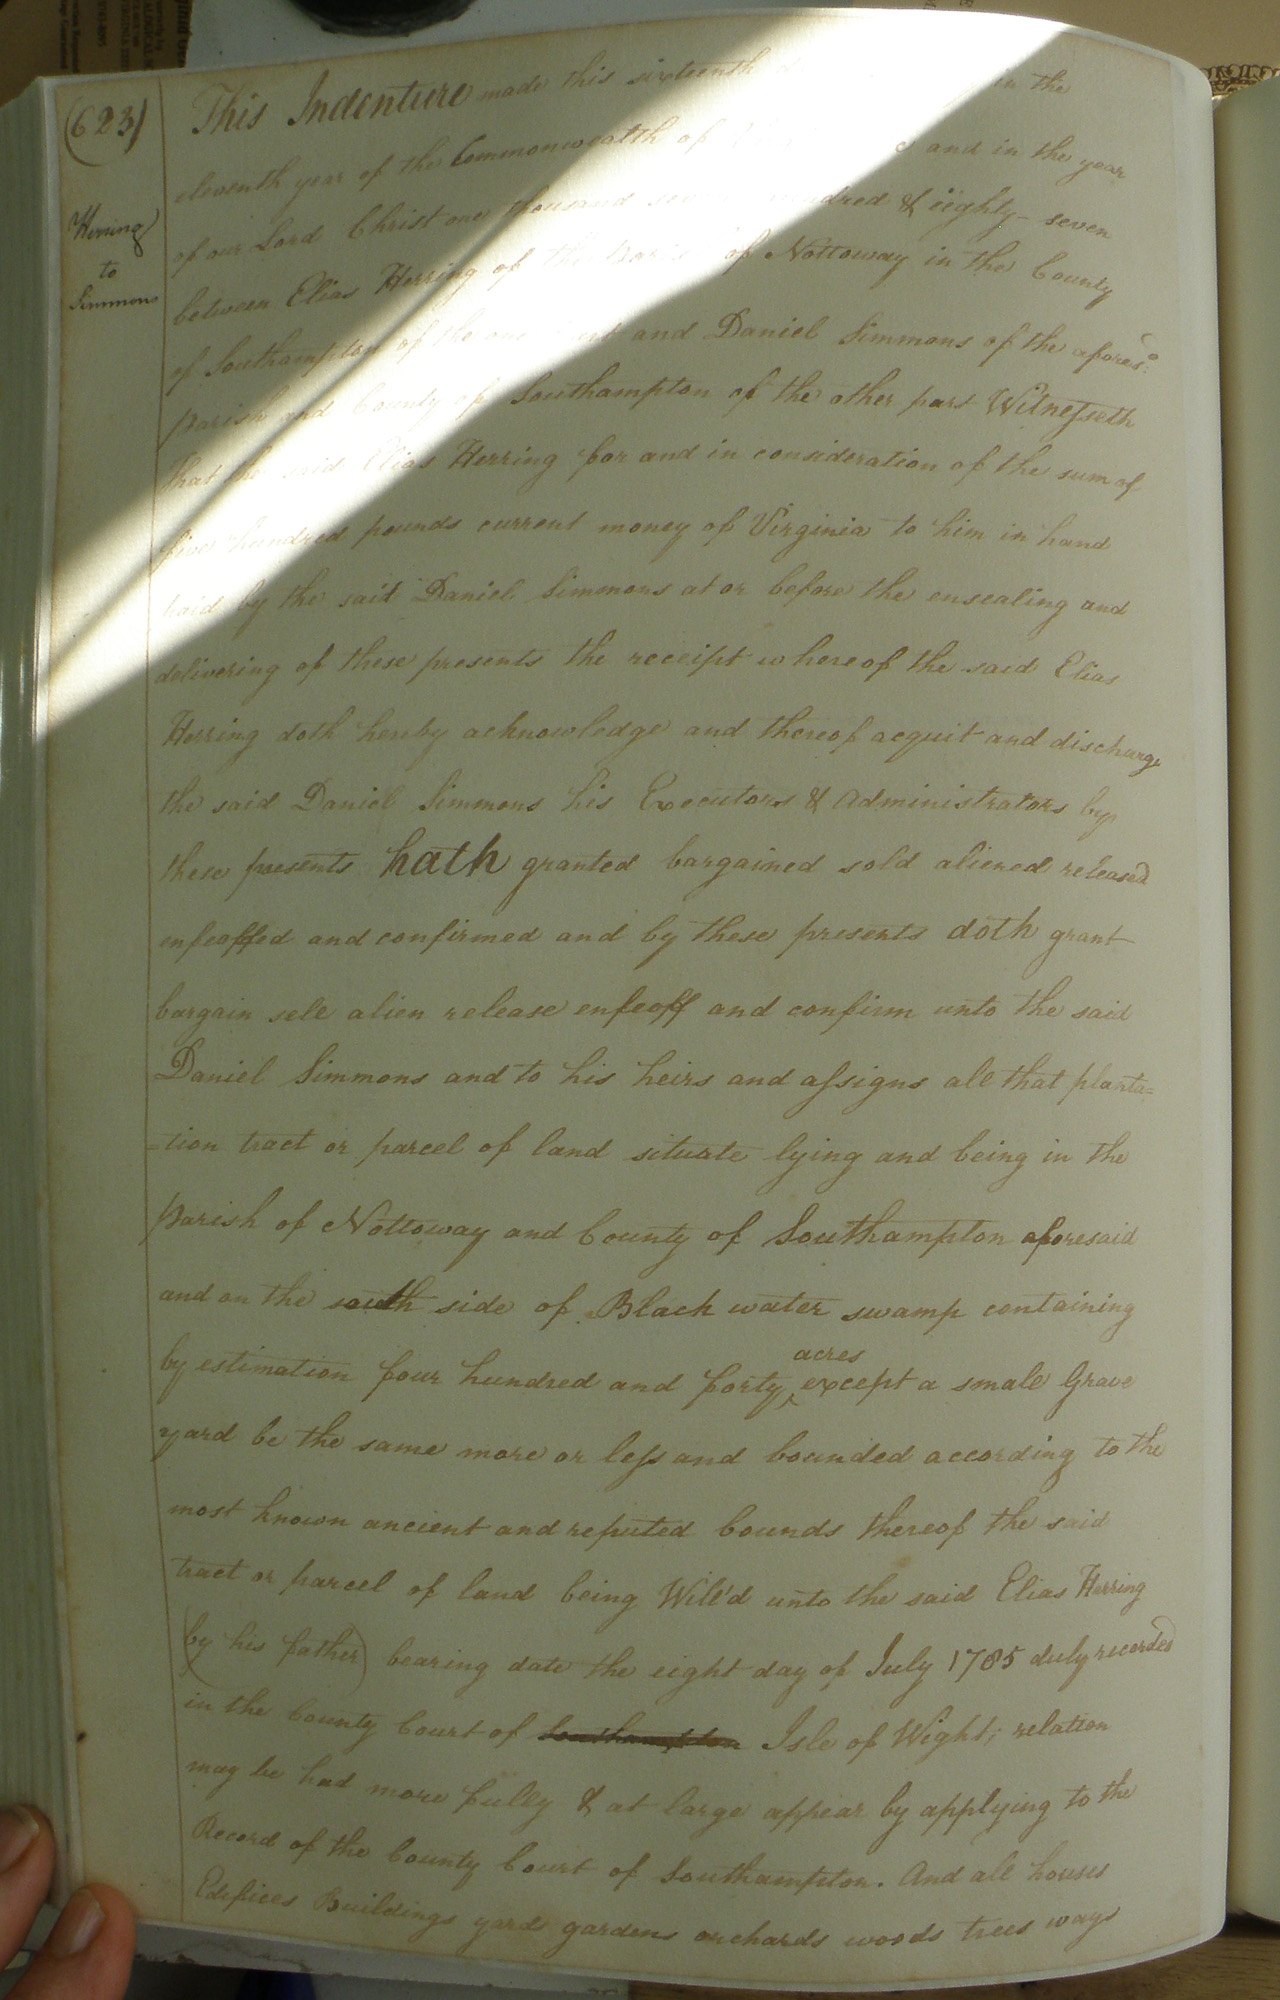 (623)
Herring
to
Simmons
This Indenture made this sixteenth in the
eleventh year of the Commonwealth of and in the year
of our Lord Christ one thousand seven hundred & eighty-seven
between Elias Herring of the Parish of Nottoway in the County
of Southampton of the one part and Daniel Simmons of the afores:d
parish and County of Southampton of the other part Witnesseth
That the said Elias Herring for and in consideration of the sum of
five hundred pounds current money of Virginia to him in hand
paid by the said Daniel Simmons at or before the ensealing and
delivering of these presents the receipt whereof the said Elias
Herring doth hereby acknowledge and thereof acquit and discharge
the said Daniel Simmons his Executors & Administrators by
these presents hath granted bargained sold aliened released
enfeoffed and confirmed and by these presents doth grant
bargain sell alien release enfeoff and confirm unto the said
Daniel Simmons and to his heirs and assigns all that planta=
=tion tract or parcel of land situate lying and being in the
Parish of Nottoway and County of Southampton aforesaid
and on the south side of Black water swamp containing
by estimation four hundred and forty acres except a small Grave
yard be the same more or less and bounded according to the
most known ancient and reputed bounds thereof the said
tract or parcel of land being Will'd unto the said Elias Herring
(by his father) bearing date the eight day of July 1785 duly recorded
in the County Court of Southampton Isle of Wight; relation
may be had more fully & at large appear by applying to the
Record of the County Court of Southampton. And all houses
Edifices Buildings yards gardens orchards woods trees ways